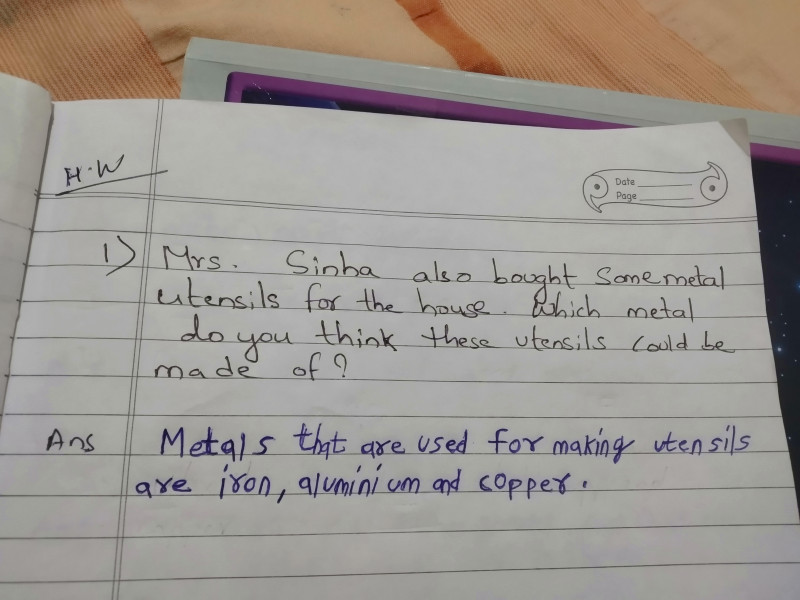 H.W
Date
Page
1) Mrs. Sinha also bought some metal
utensils for the house. Which metal
do you think these utensils could be
made of?
Ans Metals that are used for making utensils
are iron, aluminium and copper.